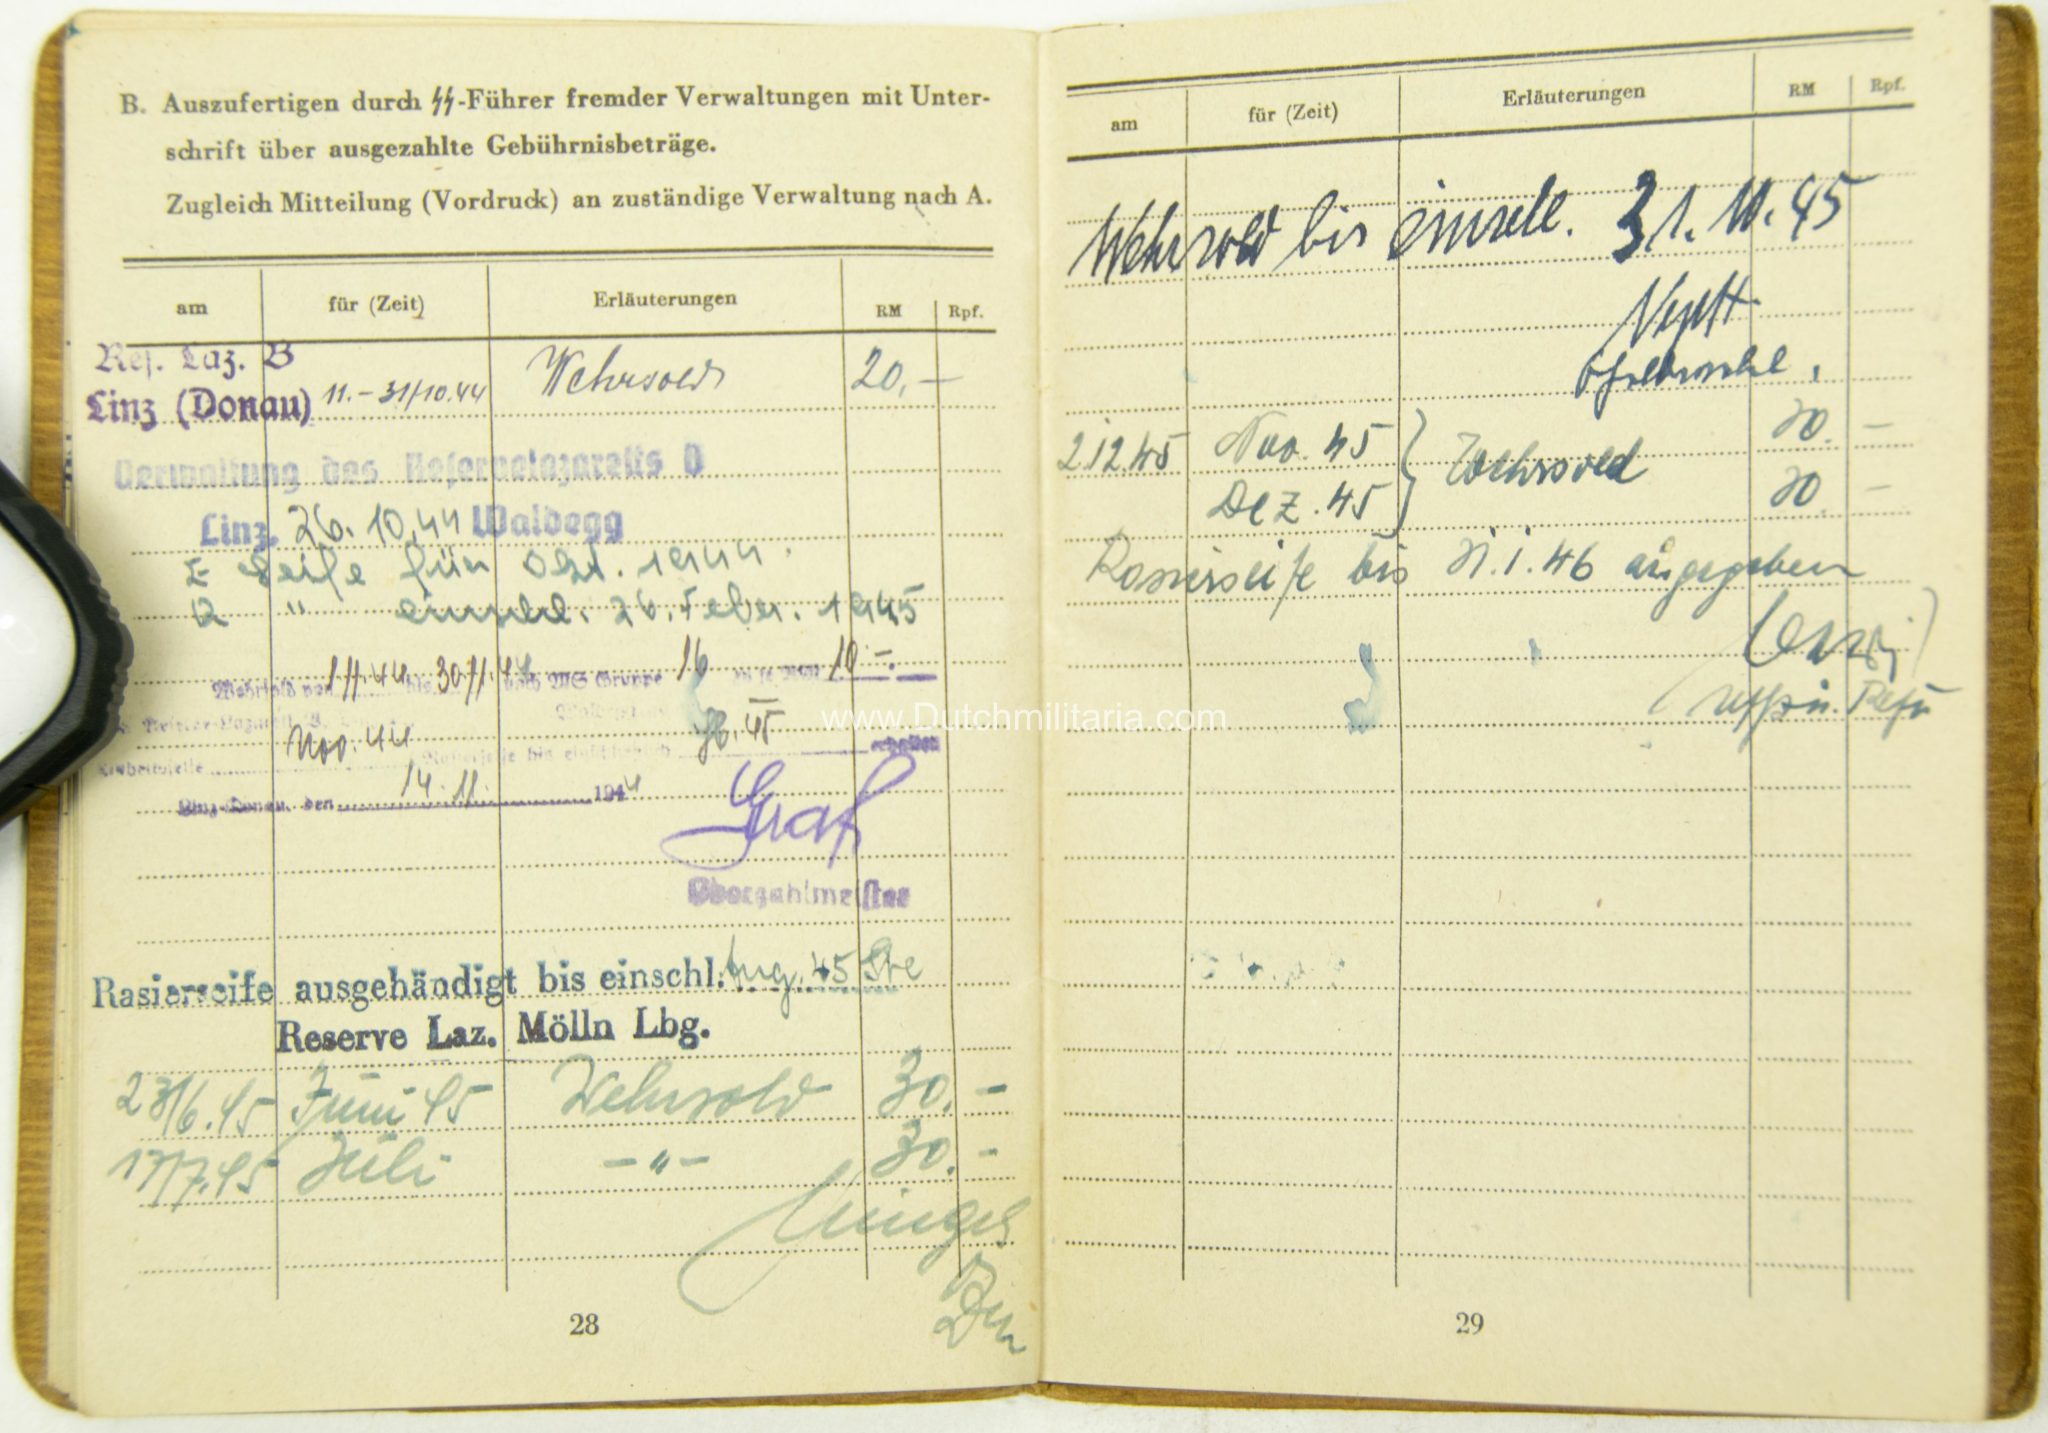 B. Auszufertigen durch SS-Führer fremder Verwaltungen mit Unter-
schrift über ausgezahlte Gebührnisbeträge.
Zugleich Mitteilung (Vordruck) an zuständige Verwaltung nach A.
am für (Zeit) Erläuterungen RM Rpf.
Res. Laz. B
Linz (Donau) 11.-31/10.44 Wehrsold 20,—
Verwaltung des Reservelazaretts
Linz, 26.10.44 Waldegg
Seife für Okt. 1944.
" einschl. 26. Feber. 1945
Wehrsold von 1.11.44 bis 30.11.44 nach WS Gruppe 16 10.-
Nov. 44 Rasierseife bis einschließlich 45 erhalten
Linz-Donau, den 14.11. 1944
Graf
Oberzahlmeister
Rasierseife ausgehändigt bis einschl. Aug. 45
Reserve Laz. Mölln Lbg.
23/6.45 Juni 45 Wehrsold 30.-
17/7.45 Juli -"- 30.-
28
am für (Zeit) Erläuterungen RM Rpf.
Wehrsold bis einschl. 31.10.45
2.12.45 Nov. 45 } Wehrsold 30. —
Dez. 45 30. —
Rasierseife bis 31.1.46
29
www.Dutchmilitaria.com